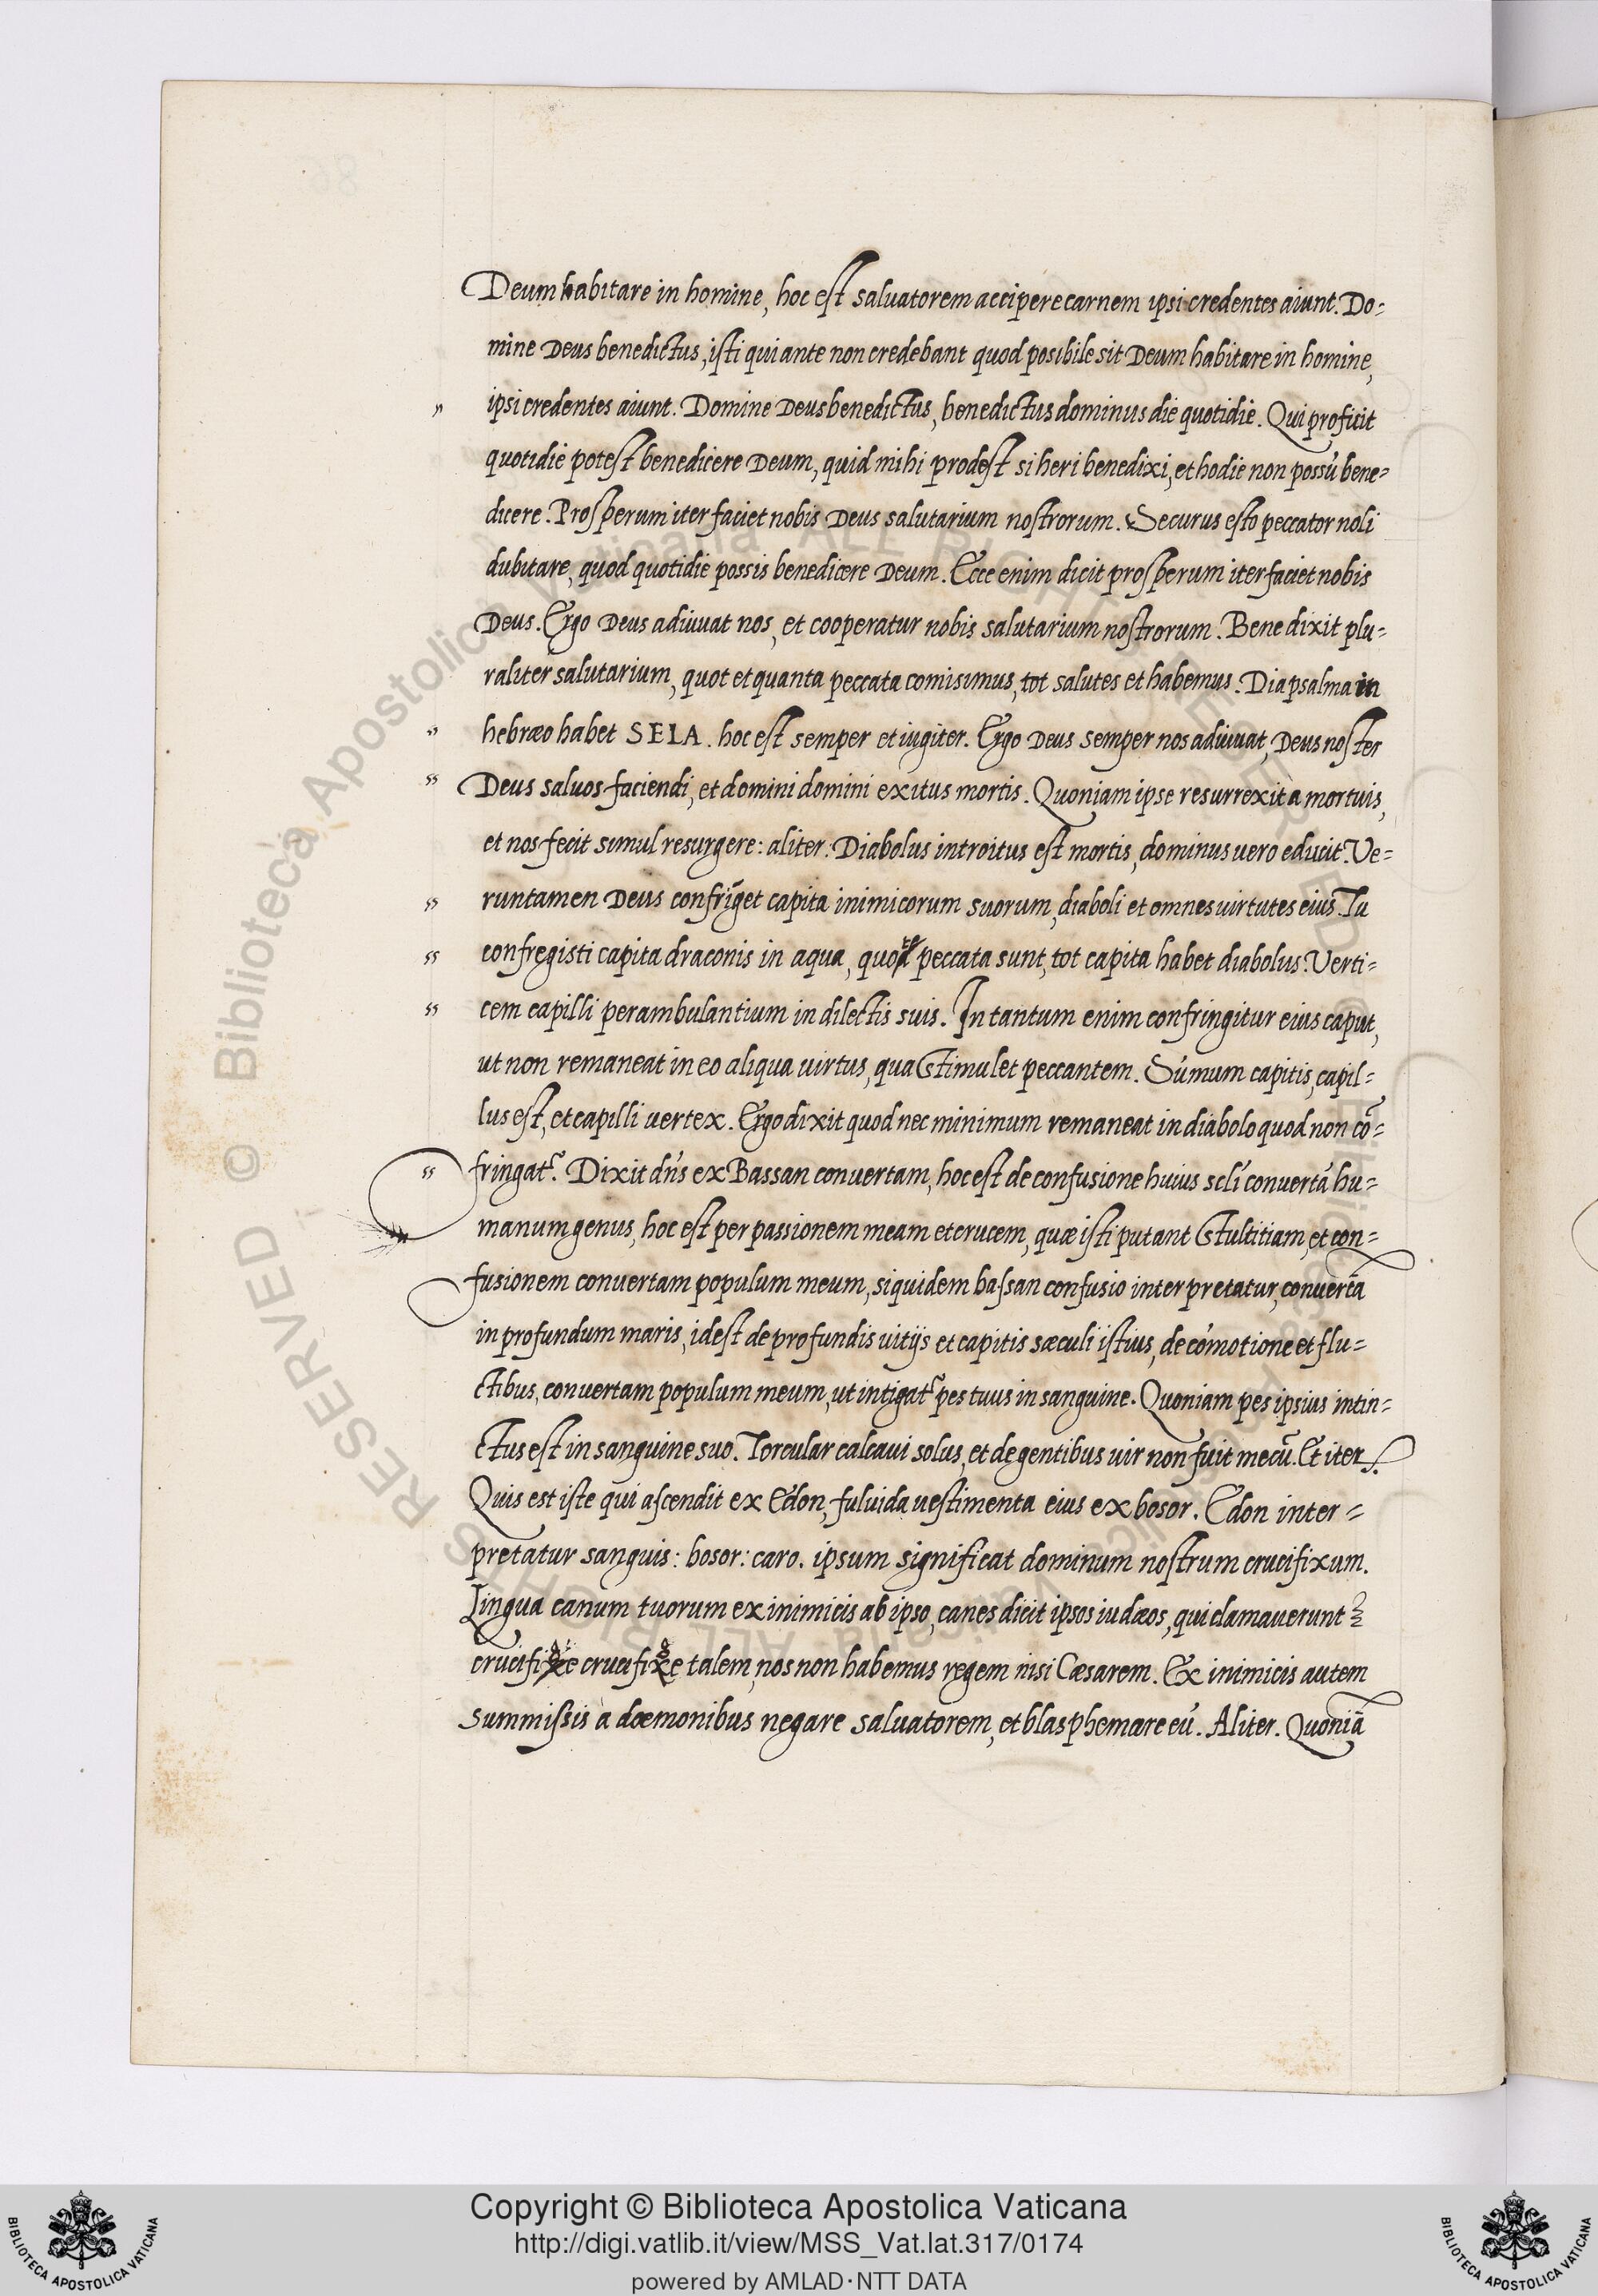 Deum habitare in homine, hoc est saluatorem accipere carnem ipsi credentes aiunt. Do=
mine Deus benedictus, isti qui ante non credebant quod posibile sit Deum habitare in homine,
" ipsi credentes aiunt. Domine Deus benedictus, benedictus dominus die quotidie. Qui proficit
quotidie potest benedicere Deum, quid mihi prodest si heri benedixi, et hodie non possũ bene=
dicere. Prosperum iter faciet nobis Deus salutarium nostrorum. Securus esto peccator noli
dubitare, quod quotidie possis benedicere Deum. Ecce enim dicit prosperum iter faciet nobis
Deus. Ergo Deus adiuuat nos, et cooperatur nobis salutarium nostrorum. Bene dixit plu=
raliter salutarium, quot et quanta peccata comisimus, tot salutes et habemus. Diapsalma in
" hebræo habet SELA. hoc est semper et iugiter. Ergo Deus semper nos adiuuat, Deus noster
" Deus saluos faciendi, et domini domini exitus mortis. Quoniam ipse resurrexit a mortuis,
et nos fecit simul resurgere: aliter. Diabolus introitus est mortis, dominus uero educit. Ve=
" runtamen Deus confrĩget capita inimicorum suorum, diaboli et omnes uirtutes eius. Tu
" confregisti capita draconis in aqua, quot peccata sunt, tot capita habet diabolus. Verti=
" cem capilli perambulantium in dilectis suis. In tantum enim confringitur eius caput,
ut non remaneat in eo aliqua uirtus, qua stimulet peccantem. Sũmum capitis, capil=
lus est, et capilli uertex. Ergo dixit quod nec minimum remaneat in diabolo quod non cõ=
" fringatr̃. Dixit dñs ex Bassan conuertam, hoc est de confusione huius scl̃i conuertã hu=
manum genus, hoc est per passionem meam et crucem, quæ isti putant stultitiam, et con=
fusionem conuertam populum meum, siquidem bassan confusio interpretatur, conuertã
in profundum maris, idest de profundis uitijs et capitis sæculi istius, de cõmotione et flu=
ctibus, conuertam populum meum, ut intigatr̃ pes tuus in sanguine. Quoniam pes ipsius intin=
ctus est in sanguine suo. Torcular calcaui solus, et de gentibus uir non fuit mecũ. Et iter
Quis est iste qui ascendit ex Edon, fuluida uestimenta eius ex bosor. Edon inter=
pretatur sanguis: bosor: caro. ipsum significat dominum nostrum crucifixum.
Lingua canum tuorum ex inimicis ab ipso, canes dicit ipsos iudæos, qui clamauerunt
crucifige crucifige talem, nos non habemus regem nisi Cæsarem. Ex inimicis autem
summissis à dæmonibus negare saluatorem, et blasphemare eũ. Aliter. Quoniã
Copyright © Biblioteca Apostolica Vaticana
http://digi.vatlib.it/view/MSS_Vat.lat.317/0174
powered by AMLAD·NTT DATA
BIBLIOTECA APOSTOLICA VATICANA
BIBLIOTECA APOSTOLICA VATICANA